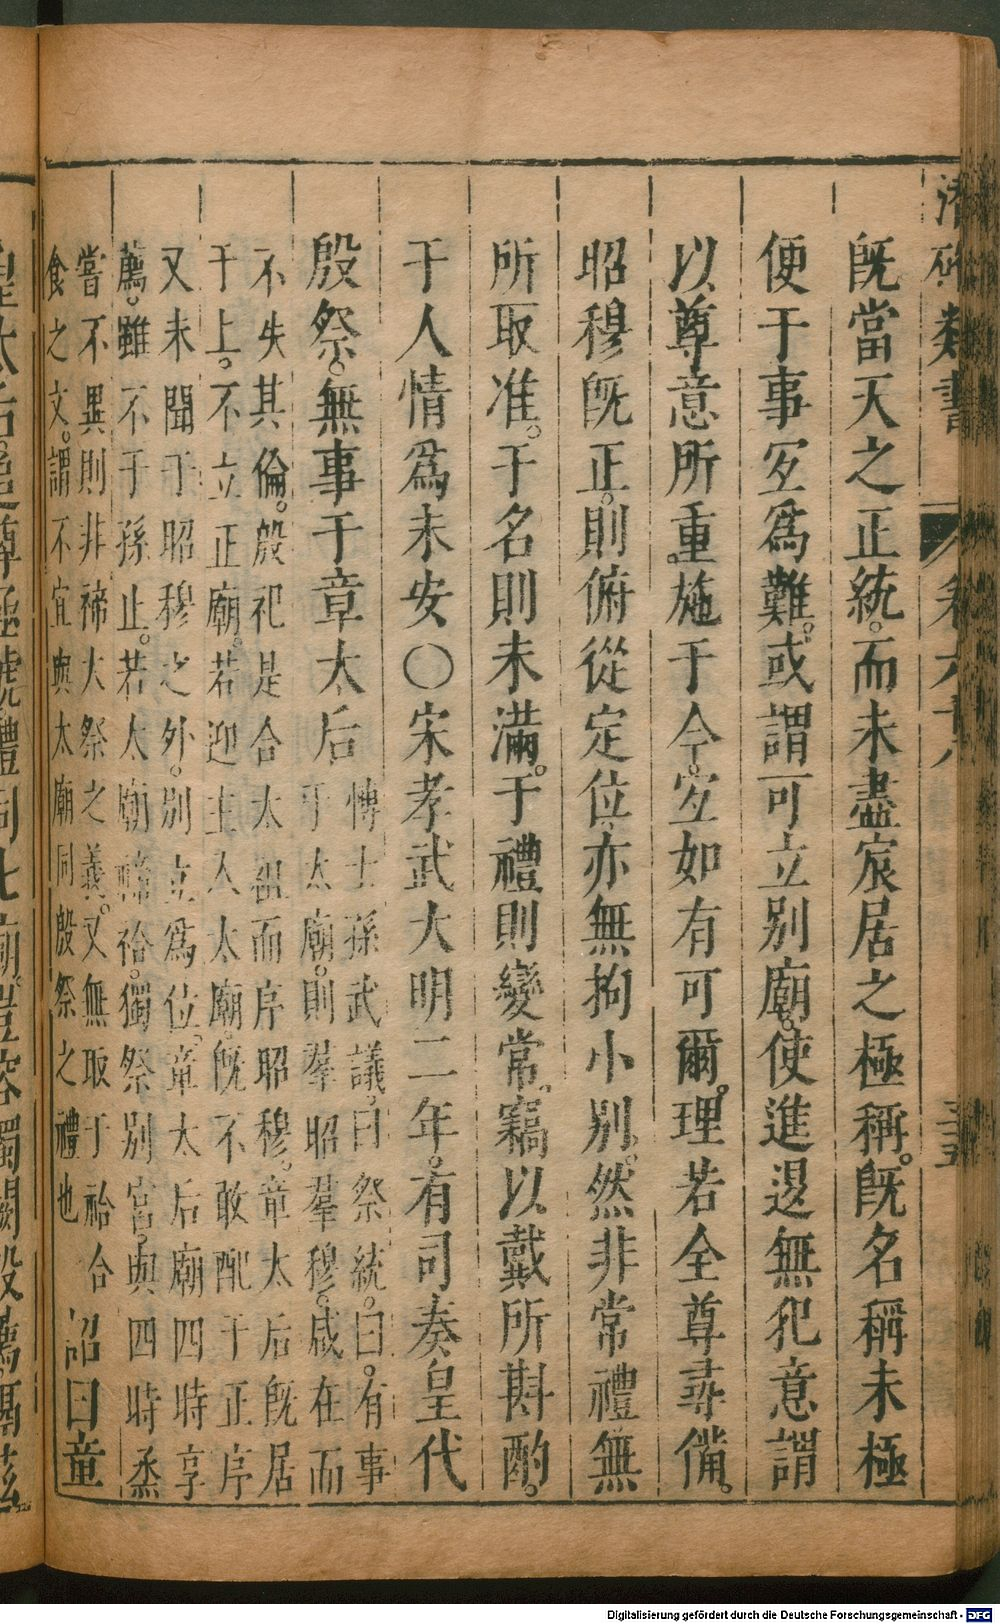 潛確類書 卷六十八 三五
既當天之正統。而未盡宸居之極稱。既名稱未極
便于事宐爲難。或謂可立别廟。使進退無犯意謂
以尊意所重。施于今。宐如有可爾。理若全尊尋備。
昭穆既正。則俯從定位亦無拘小别。然非常禮無
所取准。于名則未滿。于禮則變常。竊以戴所斟酌。
于人情爲未安〇宋孝武大明二年。有司奏皇代
殷祭。無事于章太后
博士孫武議。曰祭統。曰。有事
于太廟。則羣昭羣穆。咸在而
不失其倫。殷祀是合太祖而序昭穆。章太后既居
于上。不立正廟。若迎主入太廟。既不敢配于正序
又未聞于昭穆之外。别立爲位。章太后廟四時享
薦。雖不于孫止。若太廟禘祫。獨祭别宫。與四時烝
嘗不異則非禘大祭之義。又無取于祫合
食之文。謂不宜與太廟同殷祭之禮也
詔曰章
Digitalisierung gefördert durch die Deutsche Forschungsgemeinschaft - DFG